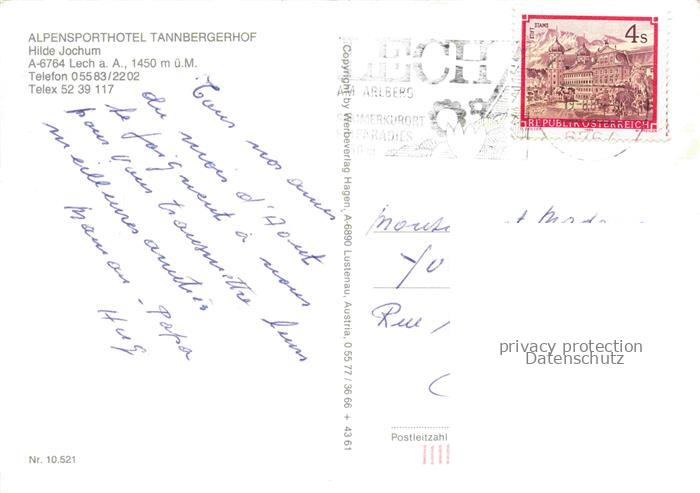 ALPENSPORTHOTEL TANNBERGERHOF
Hilde Jochum
A-6764 Lech a. A., 1450 m ü.M.
Telefon 0 55 83 / 22 02
Telex 52 39 117
Tous nos amis
du mois d'Août
se joignent à nous
pour vous transmettre leurs
meilleures amitiés
Maman - Papa
Hug
Nr. 10.521
Copyright by Werbeverlag Hagen, A-6890 Lustenau, Austria, 0 55 77 / 36 66 + 43 61
LECH
AM ARLBERG
SOMMERKURORT
PARADIES
STIFT STAMS
4 S
REPUBLIK ÖSTERREICH
6764
Rue
privacy protection
Datenschutz
Postleitzahl